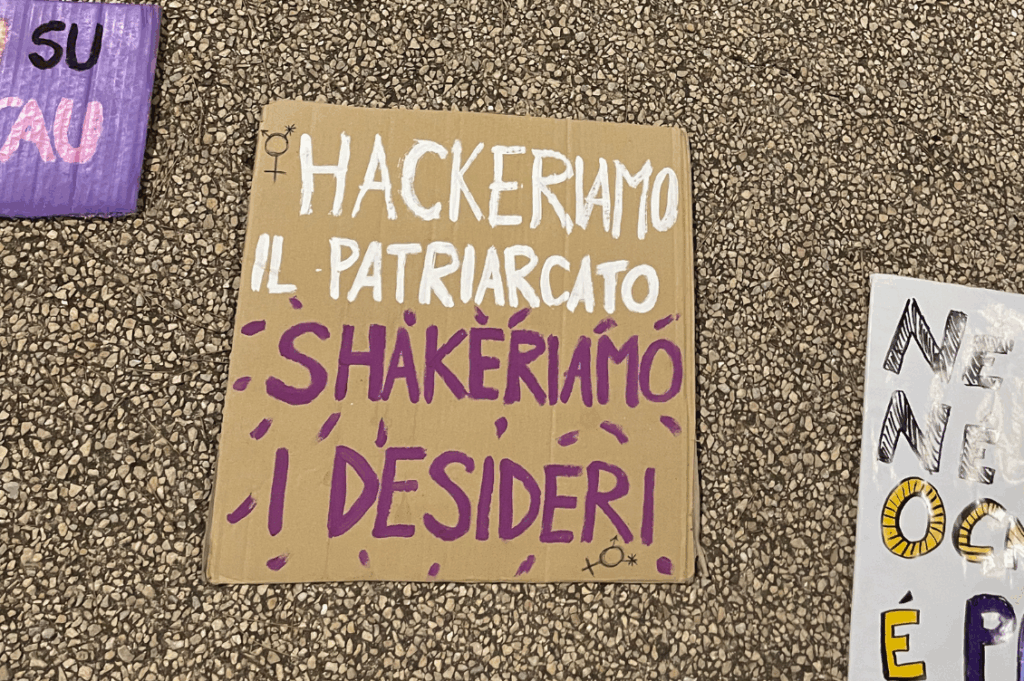 SU
HACKERIAMO
IL PATRIARCATO
SHAKERIAMO
I DESIDERI
NE
NE
É